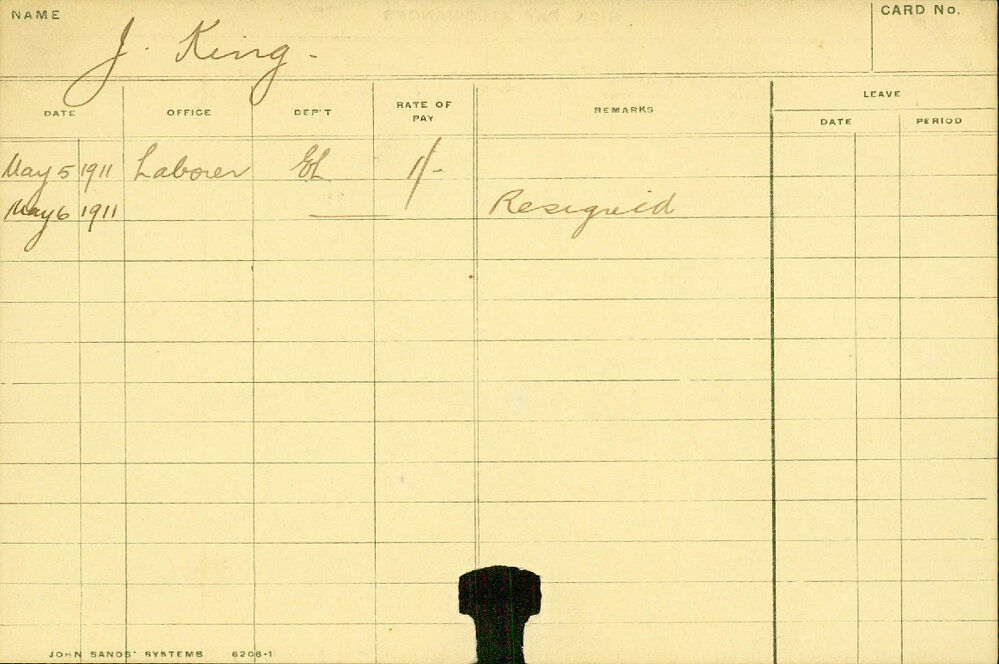 NAME J. King. CARD No.
LEAVE
DATE OFFICE DEP'T RATE OF PAY REMARKS DATE PERIOD
May 5 1911 Laborer EL 1/-
May 6 1911 Resigned
JOHN SANDS' SYSTEMS 6206-1